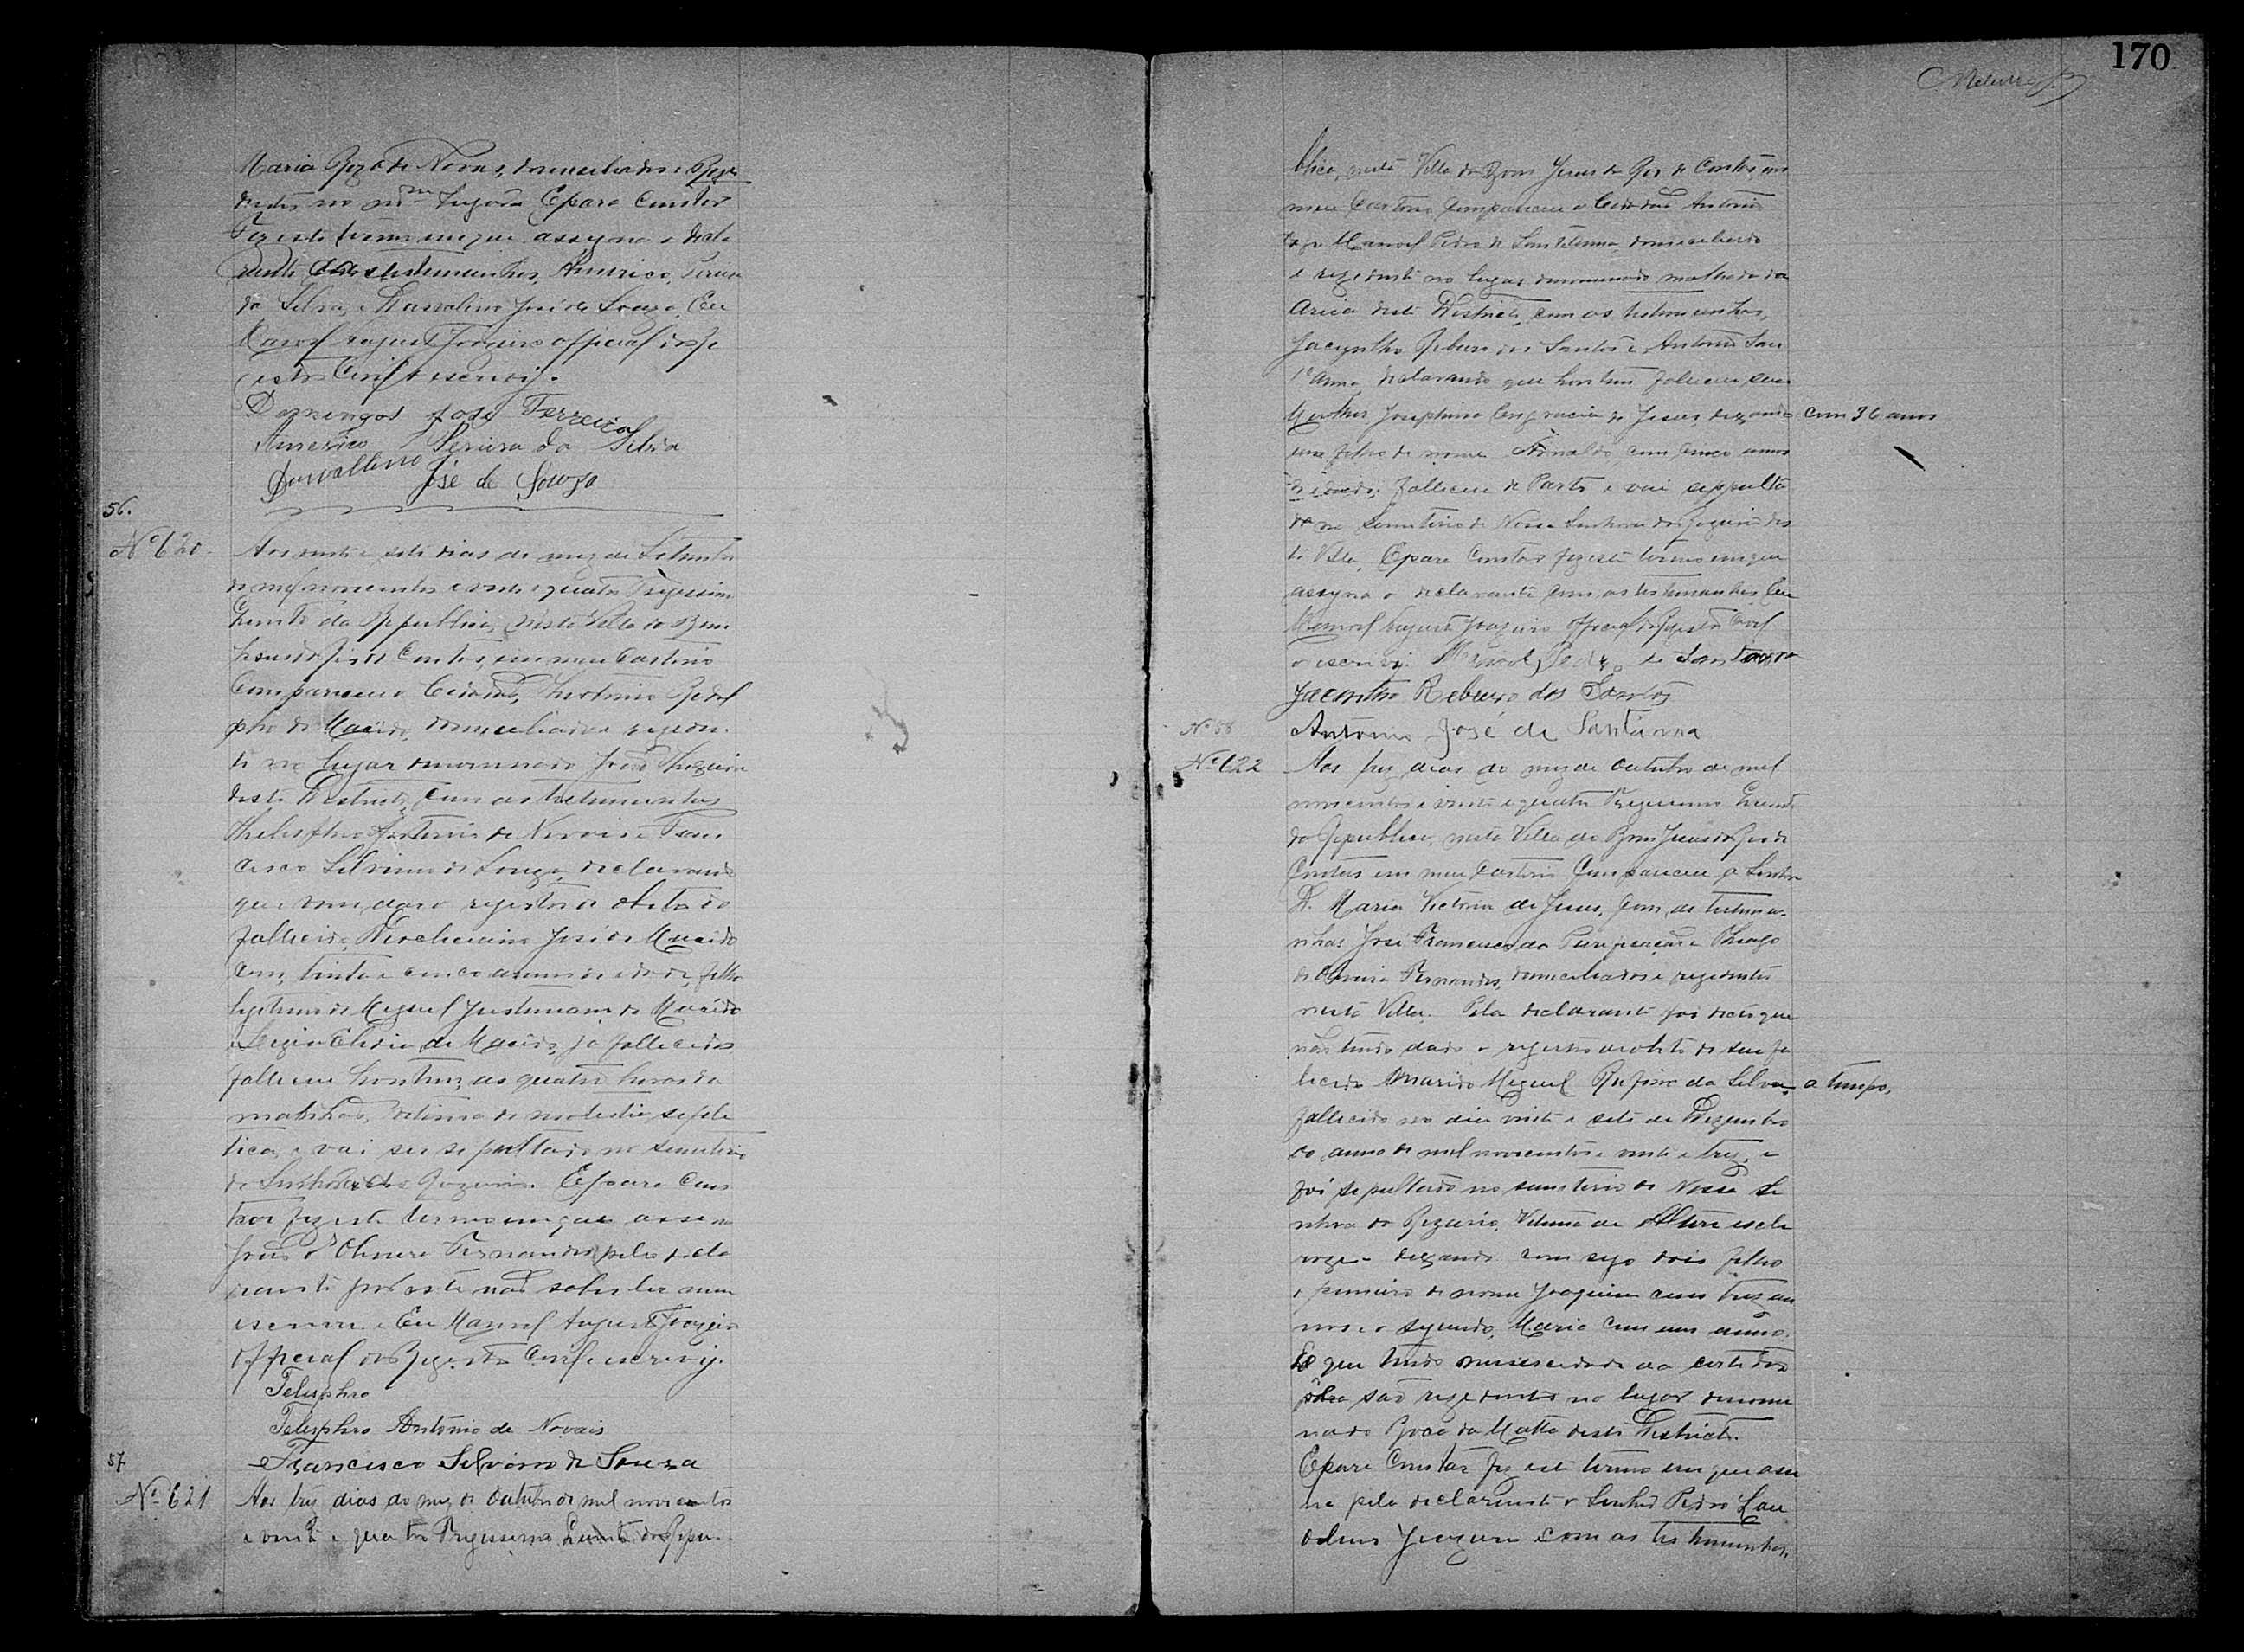 170
Maria Roza de Novaes, domiciliados e Rezi
dentes no mmo lugar. E para constar
fiz este termo em que assigna o decla
rante com as testemunhas, Americo Pereira
da Silva, e Durvalino José de Souza. Eu
Manoel Augusto Joazeiro official do Re
gistro Civil o escrevij.
Domingos José Ferreira
Americo Pereira da Silva
Durvallino José de Souza
56.
Nº 620. Aos vinte e sete dias do mez de Setembro
de mil novecentos e vinte e quatro Trigessimo
Quinto da Republica, nesta Villa do Bom
Jesus do Rio de Contas, em meu Cartorio
Compareceu o Cidadão, Antonio Rodol
pho de Macêdo, domiciliado e reziden
te no lugar denominado
deste Districto, com as testemunhas
Thelesphro Antonio de Novais e Fran
cisco Silvino de Souza, declarando
que vem dar o registro de obito do
fallecido, Deocleciano José de Macêdo
com, trinta e cinco annos de edade, filho
legitimo de Miguel Justiniano de Macêdo
e Elidia de Macêdo, já fallecidos
falleceu hontem, as quatro horas da
manhã, vitima de molestia sefele
tica, e vai ser sepultado no semiterio
da Senhora do Rozario. E para cons
tar fiz este termo em que assina
Oliveira Fernandes, pelo decla
rante por este não saber ler nem
escrever. Eu Manoel Augusto Joazeiro
Official do Registro Civil escrevij.
Telesphro
Telesphro Antonio de Novais
Francisco Silvino de Souza
57
Nº 621 Aos trêz dias do mez de Outubro de mil novecentos
e vinte e quatro Trigessimo Quinto da Repu-
blica, nesta Villa do Bom Jesus do Rio de Contas em
meu Cartorio Compareceu o Cidadão Antonio
digo Manoel Pedro de Sant'Anna, domiciliado
e rezidente no lugar denominado malhada da
Areia deste Districto, com as testemunhas,
Jacyntho Ribeiro dos Santos e, Antonio San
t'Anna, declarando que hontem falleceu sua
Mulher Josephina Engracia de Jesus, deixando com 36 annos
um filho de nome Arnaldo, com cinco annos
de edade, falleceu de Parto e vai sepulta
da no semiterio de Nossa Senhora do Rozario des
ta Villa. E para constar fiz este termo em que
assigna o declarante com as testemunhas. Eu
Manoel Augusto Joazeiro Official do Registro Civil
o escrevij. Manoel Pedro de Santanna
Jacintho Ribeiro dos Santos
Nº 58 Antonio José de Santanna
Nº 622 Aos trez dias do mez de Outubro de mil
novecentos e vinte e quatro Trigessimo Quinto
da Republica, nesta Villa do Bom Jesus do Rio de
Contas em meu Cartorio Compareceu a Senhora
D. Maria Victoria de Jesus, com as testemu-
nhas José Francisco da Purificação e Thiago
de Oliveira Fernandes, domiciliados e rezidentes
nesta Villa. Pela declarante foi dicto que
não tendo dado o registro de obito do seu fa
lecido Marido Miguel Rufino da Silva, a tempo,
fallecido no dia vinte e sete de Dezembro
do anno de mil novecentos e vinte e trez, e
foi sepultado no semiterio de Nossa Se
nhora do Rozario, Vitima de
deixando com sigo dois filho
o primeiro de nome Joaquim com trez an
nos e o segundo, Maria com um anno.
E que tendo nescessidade da certidão
são rezidentes no lugar denomi
nado Boca da Matta deste Districto.
E para Constar fiz este termo em que assi
na pela declarante o Senhor Pedro Lau
Joazeiro com as testemunhas,